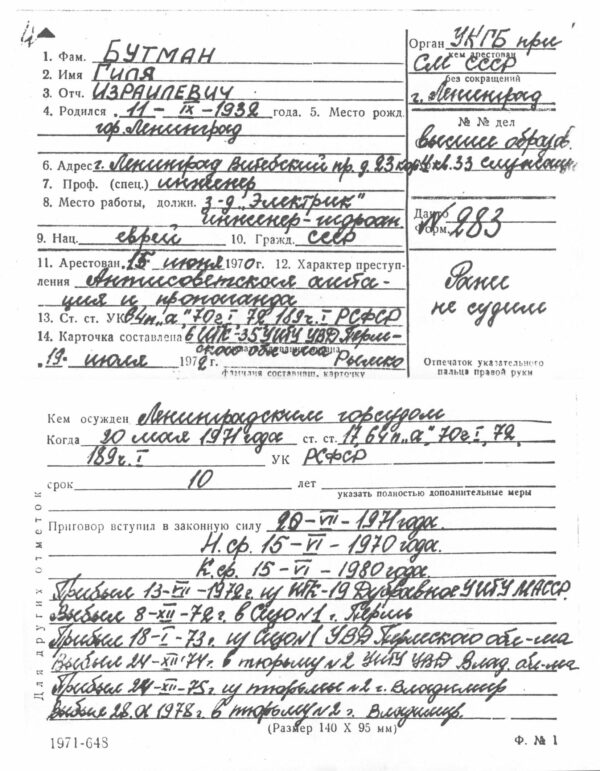 4
1. Фам. БУТМАН
2. Имя Гиля
3. Отч. ИЗРАИЛЕВИЧ
4. Родился 11-IX-1932 года. 5. Место рожд.
гор. Ленинград
6. Адрес г. Ленинград Витебский пр. д. 23 кор. 4 кв. 33 служащий
7. Проф. (спец.) инженер
8. Место работы, должн. з-д „Электрик"
инженер-
9. Нац. еврей 10. Гражд. СССР
11. Арестован 15 июня 1970 г. 12. Характер преступ-
ления Антисоветская агита-
ция и пропаганда
13. Ст. ст. УК 64 п „а" 70 ч. I 72 189 ч. I РСФСР
14. Карточка составлена в ИТК-35 УИТУ УВД Перм-
ского обл-ма
19 июля 1972 г. Рымко
фамилия составивш. карточку
Орган УКГБ при
кем арестован
СМ СССР
без сокращений
г. Ленинград
№ № дел
высшее образов.
Дакто
Форм.
N 283
Ранее
не судим
Отпечаток указательного
пальца правой руки
Кем осужден Ленинградским горсудом
Когда 20 мая 1971 года ст. ст. 17, 64 п „а", 70 ч. I, 72,
189 ч. I УК РСФСР
срок 10 лет
указать полностью дополнительные меры
Приговор вступил в законную силу 20-VII-1971 года.
Н. ср. 15-VI-1970 года.
К. ср. 15-VI-1980 года
Прибыл 13-VII-1972 г. из ИТК-19 Дубравное УИТУ МАССР.
Выбыл 8-XII-72 г. в Сизо N 1 г. Пермь
Прибыл 18-I-73 г. из Сизо N 1 УВД Пермского обл-ма
Выбыл 24-XII-74 г. в тюрьму N 2 УИТУ УВД Влад. обл-ма
Прибыл 24-XII-75 г из тюрьмы N 2 г. Владимир
Выбыл 28. 1978 г. в тюрьму N 2 г. Владимир.
Для других отметок
(Размер 140 X 95 мм)
1971-648
Ф. № 1